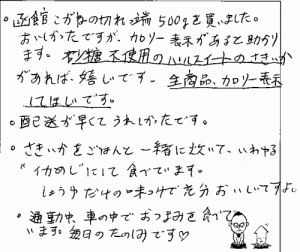 ○函館こがねの切れ端500gを買いました。
おいしかったですが、カロリー表示があると助かり
ます。砂糖不使用のハルスイートのさきいか
があれば、嬉しいです。全商品、カロリー表示
してほしいです。
○配送が早くてうれしかったです。
○さきいかをごはんと一緒に炊いて、いわゆる
"イカめし"にして食べています。
しょうゆだけの味つけで充分おいしいですよ。
○通勤中、車の中でおつまみを食べて
います。毎日のたのしみです♡